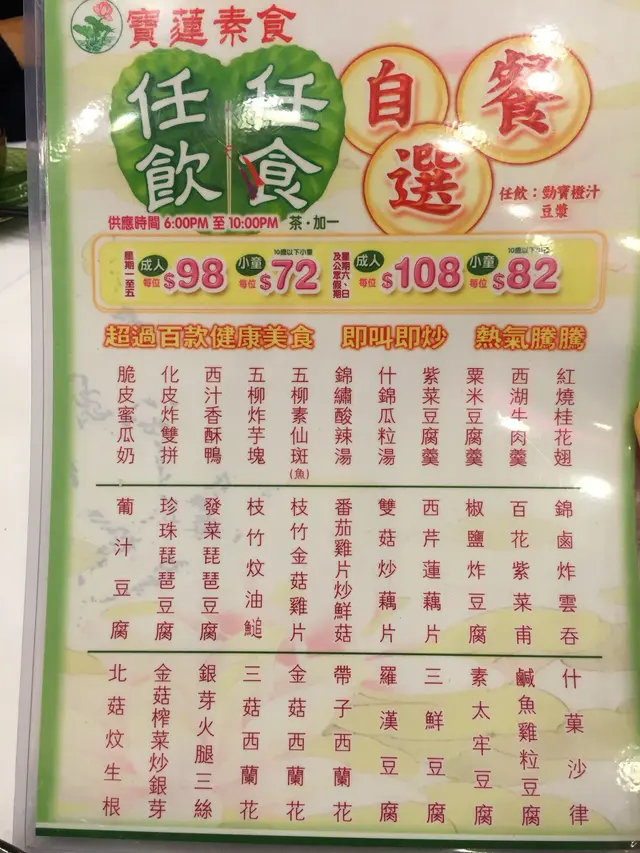 寶蓮素食
任飲
任食
自選餐
任飲：勁寶橙汁
豆漿
供應時間 6:00PM 至 10:00PM 茶·加一
星期一至五
成人
每位 $98
10歲以下小童
小童
每位 $72
星期六、日
及公眾假期
成人
每位 $108
10歲以下
小童
每位 $82
超過百款健康美食 即叫即炒 熱氣騰騰
紅燒桂花翅
西湖牛肉羹
粟米豆腐羹
紫菜豆腐羹
什錦瓜粒湯
錦繡酸辣湯
五柳素仙斑(魚)
五柳炸芋塊
西汁香酥鴨
化皮炸雙拼
脆皮蜜瓜奶
錦鹵炸雲吞
百花紫菜甫
椒鹽炸豆腐
西芹蓮藕片
雙菇炒藕片
番茄雞片炒鮮菇
枝竹金菇雞片
枝竹炆油䱽
發菜琵琶豆腐
珍珠琵琶豆腐
葡汁豆腐
什菓沙律
鹹魚雞粒豆腐
素太牢豆腐
三鮮豆腐
羅漢豆腐
帶子西蘭花
金菇西蘭花
三菇西蘭花
銀芽火腿三絲
金菇榨菜炒銀芽
北菇炆生根